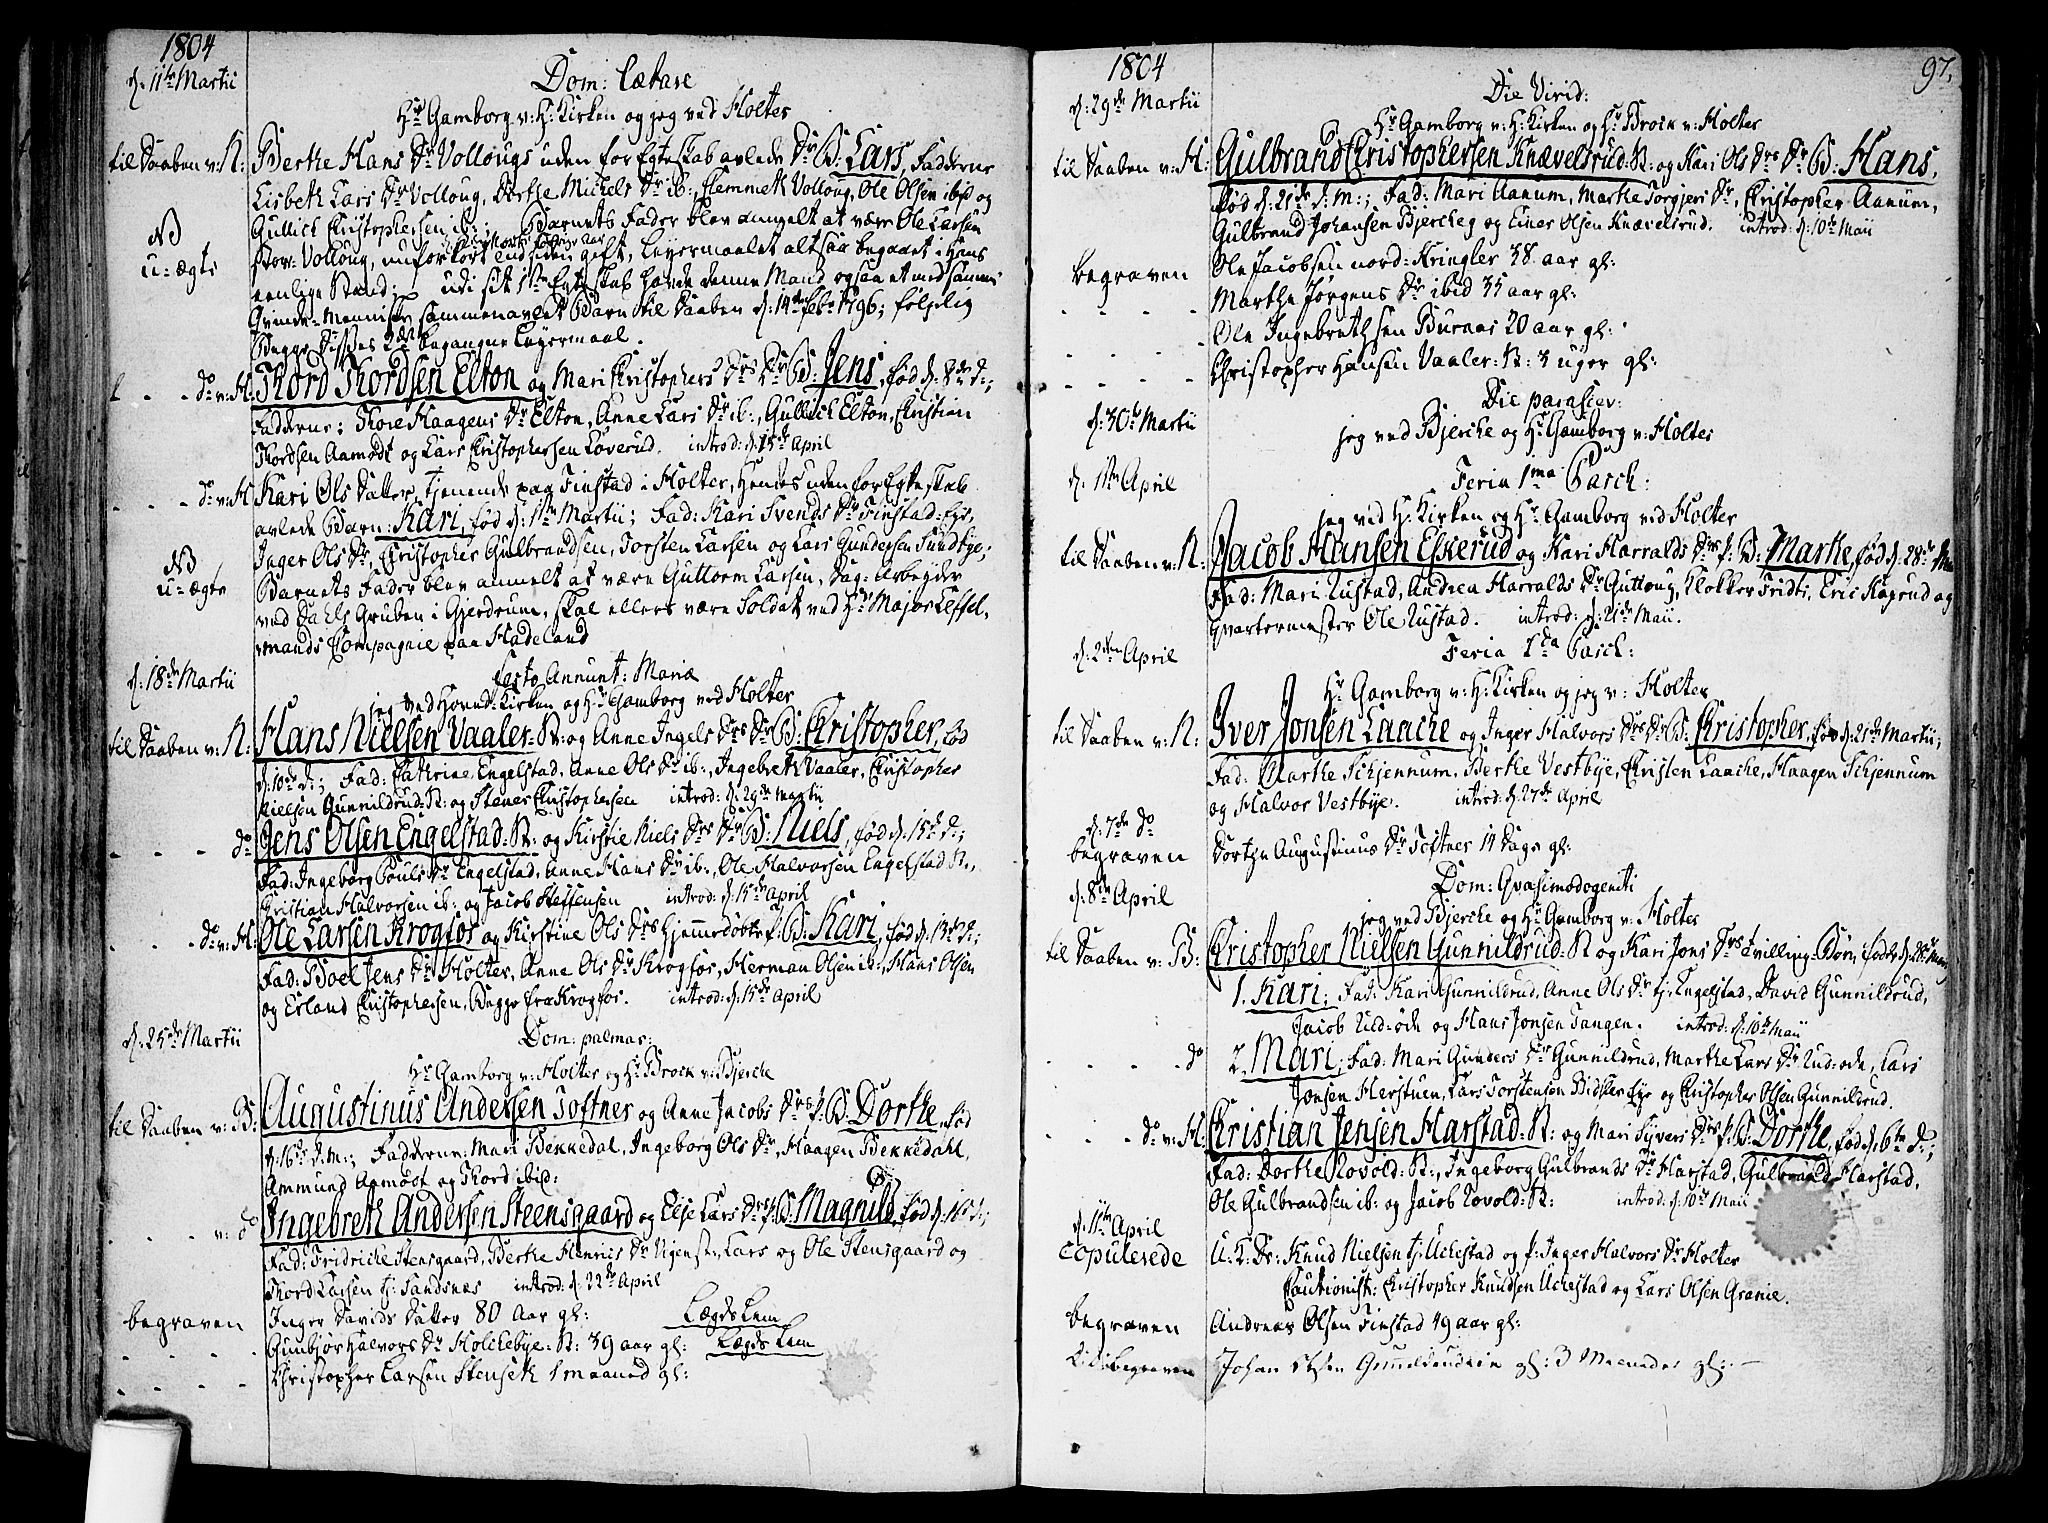 1804
d: 11te Martii
Dom: Lætare
Hr Gamborg v: H: Kirken og jeg ved Holter
til Daaben v: N: Berthe Hans Dr Vollougs uden for Egteskab avlede Dr B: Lars, Fadderne
Lisbeth Lars Dr Volloug, Dorthe Michels Dr ib:, Clemmeth Volloug, Ole Olsen ibid og
Gullich Christophersen ib:; Barnets Fader blev angelt at være Ole Larsen
NB
u-ægte
Stor-Volloug, nu for kort end siden gift, Leyermaalet altsaa begaaet i Hans
eenlige Stand; udi sit 1ste Egteskab havde denne Mand ogsaa et med samme
Qvinde-Menniske sammenavlet Barn til Daaben d: 14de febr 1796; følgelig
Begge Disses 2det begangne Leyermaal.
- - - do v: H: Thord Thordsen Elton og Mari Christophers Drs Dr B: Jens, fød d: 8de d:;
Fadderne: Thore Haagens Dr Elton, Anne Lars Dr ib:, Gullich Elton, Christian
Thordsen Aamodt og Lars Christophersen Løverud. introd: d: 15de April
- - - do v: H Kari Ols Datter, tjenende paa Finstad i Holter, Hendes uden for Egteskab
avlede Barn: Kari, fød d: 1ste Martii; Fad: Kari Svends Dr Finstad-Eye,
Inger Ols Dr, Christopher Gulbrandsen, Torsten Larsen og Lars Gundersen Sundbye;
NB
u-ægte
Barnets Fader blev anmelt at være Guttorm Larsen, Dag-Arbeyder
ved Dahls Gruben i Gjerdrum, skal ellers være Soldat ved Hr Major Leffel-
mands Compagnie paa Hadeland
d: 18de Martii
Festo Annunt: Mariæ
jeg ved Hoved-Kirken og Hr Gamborg ved Holter
til Daaben v: N: Hans Nielsen Vaaler-N: og Anne Ingels Drs Dr B: Christopher, fød
d: 10de d:; Fad: Cathrine Engelstad, Anne Ols Dr ib:, Ingebreth Vaaler, Christopher
Nielsen Gunnildrud-N: og Stener Christophersen introd: d: 29de Martii
- - - do Jens Olsen Engelstad-N: og Kirstie Niels Drs Dr B: Niels, fød d: 15de d:;
Fad: Ingeborg Pouls Dr Engelstad, Anne Hans Dr ib:, Ole Halvorsen Engelstad N:,
Christian Halvorsen ib: og Jacob Steffensen introd: d: 15de April
- - - do v: H: Ole Larsen Krogfos og Kirstine Ols Drs Hjemmedøbte p: B: Kari, fød d: 13de d:;
Fad: Boel Jens Dr Holter, Anne Ols Dr Krogfos, Herman Olsen ib:, Hans Olsen
og Erland Christophersen, Begge fra Krogfos. introd: d: 15de April
d: 25de Martii
Dom: palmar:
Hr Gamborg v: Holter og Hr Brock v: Bjerche
til Daaben v: B: Augustinus Andersen Toftner og Anne Jacobs Drs p: B: Dorthe, fød
d: 16de d: m:; Fadderne: Mari Bekkedal, Ingeborg Ols Dr, Haagen Bekkedahl,
Ammund Aamodt og Thord ibid:
- - - v: do Ingebreth Andersen Steensgaard og Else Lars Drs p: B: Magnild, fød d: 16de d:;
Fad: Fridriche Stensgaard, Berthe Henrics Dr, Lars og Ole Stensgaard og
Thord Larsen tj: Sandsnes introd: d: 22de April
begraven Inger Davids Datter 80 Aar gl: Lægds Lem
- - - Gunbjør Halvors Dr Holchebye-N: 39 aar gl: Lægds Lem
- - - Christopher Larsen Stenseth 1 maaned gl:
1804
97.
d: 29de Martii
Die Virid:
Hr Gamborg v: H: Kirken og Hr Brock v: Holter
til Daaben v: H: Gulbrand Christophersen Knævelsrud-N: og Kari Ols Drs Dr B: Hans,
fød d: 21de d: m:; Fad: Mari Aanum, Marthe Torgjers Dr, Christopher Aanum,
Gulbrand Johansen Bjercheg og Einer Olsen Knævelsrud. introd: d: 10de Maii
begraven Ole Jacobsen nord-Kringler 38 aar gl:
- - - Marthe Jørgens Dr ibid 35 aar gl:
- - - Ole Ingebrethsen Buraas 20 aar gl:
- - - Christopher Hansen Vaaler-N: 3 uger gl:
d: 30te Martii
Die parascev:
jeg ved Bjerche og Hr Gamborg v: Holter
d: 1ste April
Feria 1ma Pasch:
jeg ved H: Kirken og Hr Gamborg ved Holter
til Daaben v: N: Jacob Hansen Eskerud og Kari Harralds Drs p: B: Marthe, fød d: 28de Mar
Fad: Mari Rustad, Andrea Harralds Dr Guttoug, Klokker Fridti, Eric Hagrud og
Qvartermester Ole Rustad. introd: d: 21de Maii.
d: 2den April
Feria 2da Pasch:
Hr Gamborg v: H: Kirken og jeg v: Holter
til Daaben v: N: Iver Jonsen Laache og Inger Halvors Drs Dr B: Christopher, fød d: 21de Martii;
Fad: Marthe Schjennum, Berthe Vestbye, Christen Laache, Haagen Schjennum
og Halvor Vestbye. introd: d: 27de April
d: 7de do
begraven Dorthe Augustinus Dr Toftner 14 Dage gl:
d: 8de April
Dom: Qvasimodogeniti
jeg ved Bjerche og Hr Gamborg v: Holter
til Daaben v: B: Christopher Nielsen Gunnildrud-N og Kari Jons Drs Tvilling-Børn, fødde d: 28de Mar
1. Kari; Fad: Kari Gunnildrud, Anne Ols Dr tj: Engelstad, David Gunnildrud,
Jacob Lud-øde og Hans Jonsen Tangen. introd: d: 10de Maii
- - - do 2. Mari; Fad: Mari Gunders Dr Gunnildrud, Marthe Lars Dr Lud-øde, Lars
Jonsen Herstuen, Lars Torstensen Bidsler Eye og Christopher Olsen Gunnildrud.
- - - do v: H: Christian Jensen Harstad-N: og Mari Syvers Drs p: B: Dorthe, fød d: 6te d:;
Fad: Dorthe Rovold-N:, Ingeborg Gulbrands Dr Harstad, Gulbrand Harstad,
Ole Gulbrandsen ib: og Jacob Rovold-N: introd: d: 10de Maii
d: 11te April
copulerede U: K: Dr: Knud Nielsen tj: Uchestad og p: Inger Halvors Dr Holter
Cautionist: Christopher Knudsen Uchestad og Lars Olsen Granie.
begraven Andreas Olsen Finstad 49 aar gl:
begraven Johan Olsen gl: 3 Maaneder gl: -